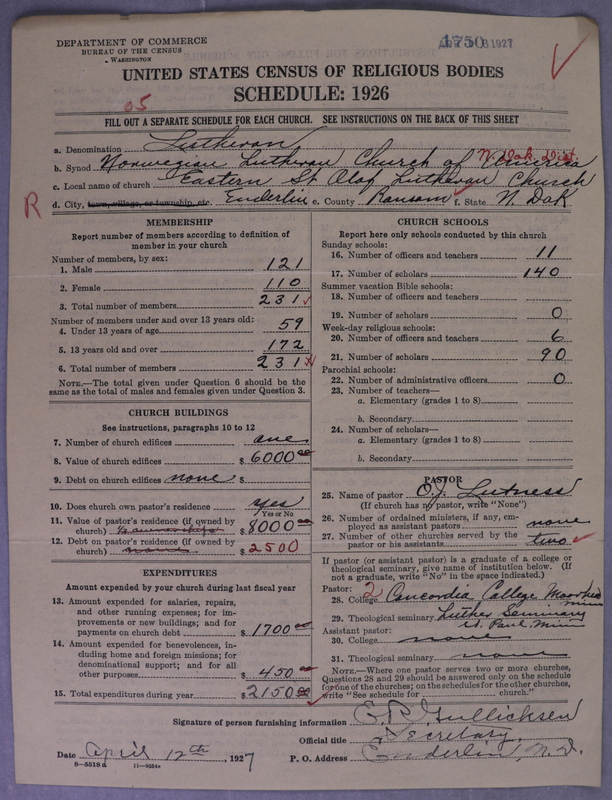 DEPARTMENT OF COMMERCE
BUREAU OF THE CENSUS
WASHINGTON
1750
1927
UNITED STATES CENSUS OF RELIGIOUS BODIES
SCHEDULE: 1926
05
FILL OUT A SEPARATE SCHEDULE FOR EACH CHURCH. SEE INSTRUCTIONS ON THE BACK OF THIS SHEET
a. Denomination Lutheran
N. Dak. Dist.
b. Synod Norwegian Lutheran Church of America
c. Local name of church Eastern St Olaf Lutheran Church
R
d. City, town, village, or township, etc. Enderlin e. County Ransom f. State N. Dak
MEMBERSHIP
Report number of members according to definition of member in your church
Number of members, by sex:
1. Male 121
2. Female 110
3. Total number of members 231
Number of members under and over 13 years old:
4. Under 13 years of age 59
5. 13 years old and over 172
6. Total number of members 231
NOTE.—The total given under Question 6 should be the same as the total of males and females given under Question 3.
CHURCH BUILDINGS
See instructions, paragraphs 10 to 12
7. Number of church edifices one
8. Value of church edifices $ 6000 00
9. Debt on church edifices none $
10. Does church own pastor's residence yes
Yes or No
11. Value of pastor's residence (if owned by church) $ 8000 00
12. Debt on pastor's residence (if owned by church) none $ 2500
EXPENDITURES
Amount expended by your church during last fiscal year
13. Amount expended for salaries, repairs, and other running expenses; for improvements or new buildings; and for payments on church debt $ 1700 00
14. Amount expended for benevolences, including home and foreign missions; for denominational support; and for all other purposes $ 450 00
15. Total expenditures during year $ 2150 00
CHURCH SCHOOLS
Report here only schools conducted by this church
Sunday schools:
16. Number of officers and teachers 11
17. Number of scholars 140
Summer vacation Bible schools:
18. Number of officers and teachers
19. Number of scholars 0
Week-day religious schools:
20. Number of officers and teachers 6
21. Number of scholars 90
Parochial schools:
22. Number of administrative officers 0
23. Number of teachers—
a. Elementary (grades 1 to 8)
b. Secondary
24. Number of scholars—
a. Elementary (grades 1 to 8)
b. Secondary
PASTOR
25. Name of pastor O.J. Lutness
(If church has no pastor, write "None")
26. Number of ordained ministers, if any, employed as assistant pastors none
27. Number of other churches served by the pastor or his assistants two
If pastor (or assistant pastor) is a graduate of a college or theological seminary, give name of institution below. (If not a graduate, write "No" in the space indicated.)
Pastor: 2
28. College Concordia College Moorhead Minn
29. Theological seminary Luther Seminary St. Paul Minn
Assistant pastor:
30. College none
31. Theological seminary none
NOTE.—Where one pastor serves two or more churches, Questions 28 and 29 should be answered only on the schedule for one of the churches; on the schedules for the other churches, write "See schedule for church."
Signature of person furnishing information G. R. Gullicksen
Official title Secretary
Date April 12th, 1927 P. O. Address Enderlin, N. D.
8—5518a 11—9554a